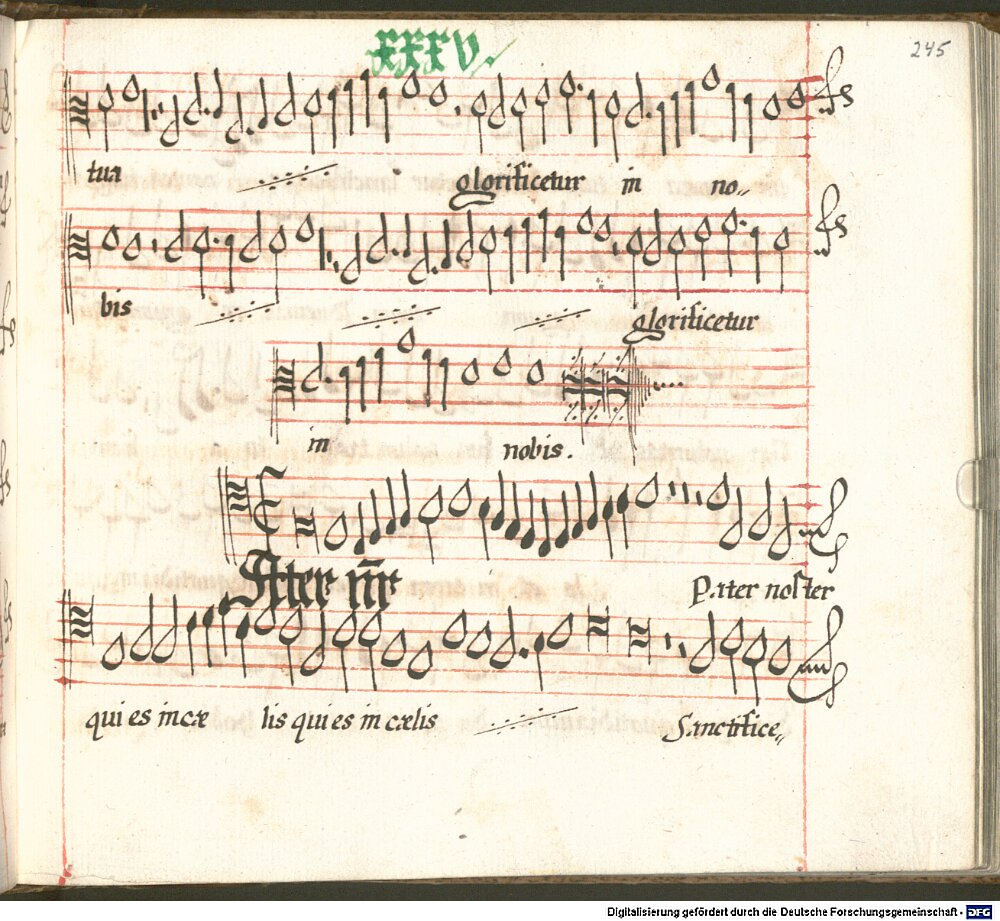 XXXV.
245
tua glorificetur in no„
bis glorificetur
in nobis.
Ater nr̄
Pater noster
qui es in cæ lis qui es in cælis Sanctifice„
Digitalisierung gefördert durch die Deutsche Forschungsgemeinschaft - DFG